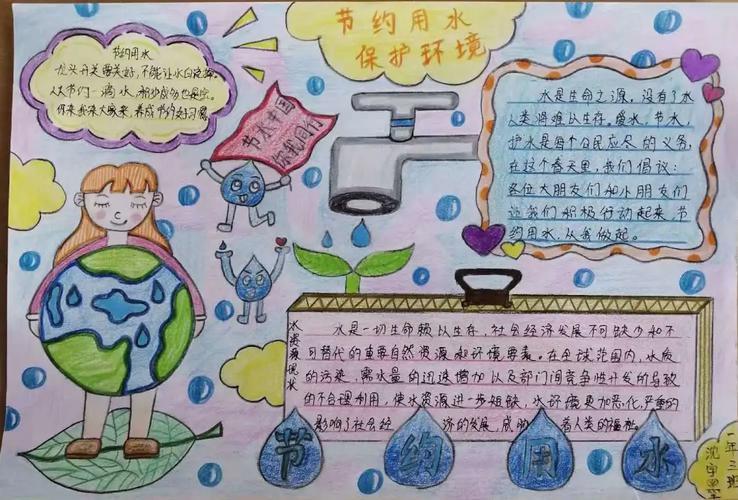 节约用水
保护环境
节约用水
龙头开关要关好,不能让水白流掉。
人人节约一滴水,
你来我来大家来,养成节约好习惯
节水中国
你我同行
水是生命之源,没有了水
人类将难以生存。爱水、节水、
护水是每个公民应尽的义务,
在这个春天里,我们倡议:
各位大朋友们和小朋友们
让我们积极行动起来,节
约用水,从我做起。
水资源现状
水是一切生命赖以生存,社会经济发展不可缺少和不
可替代的重要自然资源和环境要素。在全球范围内,水质
的污染,需水量的迅速增加以及部门间竞争性开发所导致
的不合理利用,使水资源进一步短缺,水环境更加恶化,严重的
影响了社会经 济的发展,威 着人类的福祉。
节约用水
一年三班